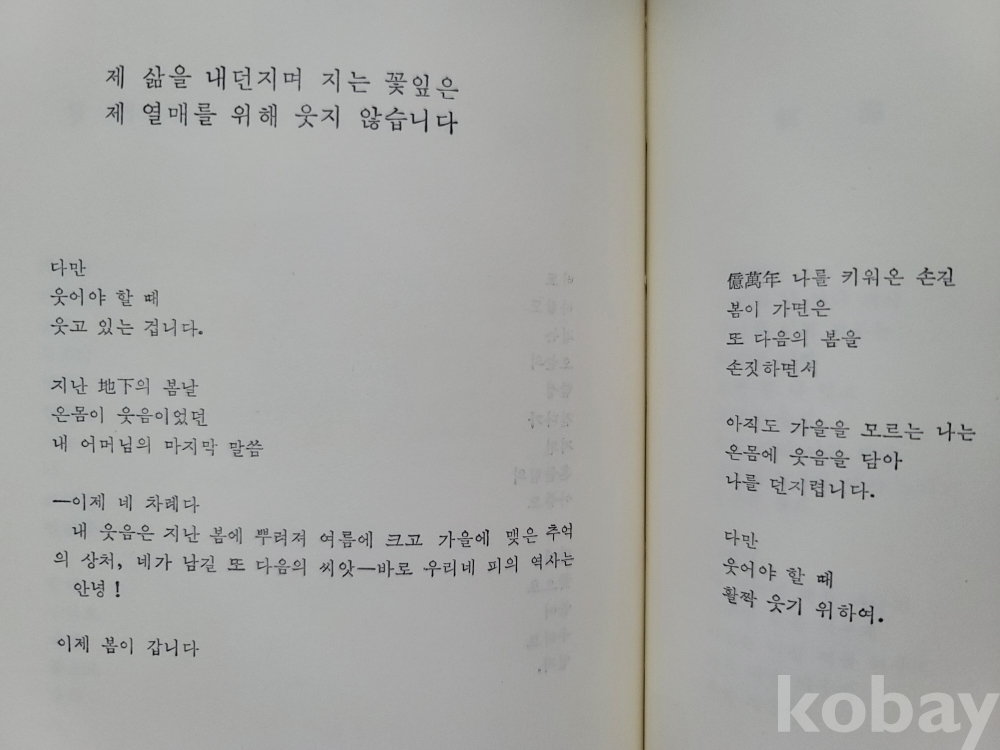 제 삶을 내던지며 지는 꽃잎은
제 열매를 위해 웃지 않습니다
다만
웃어야 할 때
웃고 있는 겁니다.
지난 地下의 봄날
온몸이 웃음이었던
내 어머님의 마지막 말씀
—이제 네 차례다
내 웃음은 지난 봄에 뿌려져 여름에 크고 가을에 맺은 추억
의 상처, 네가 남길 또 다음의 씨앗—바로 우리네 피의 역사는
안녕!
이제 봄이 갑니다
億萬年 나를 키워온 손길
봄이 가면은
또 다음의 봄을
손짓하면서
아직도 가을을 모르는 나는
온몸에 웃음을 담아
나를 던지렵니다.
다만
웃어야 할 때
활짝 웃기 위하여.
kobay